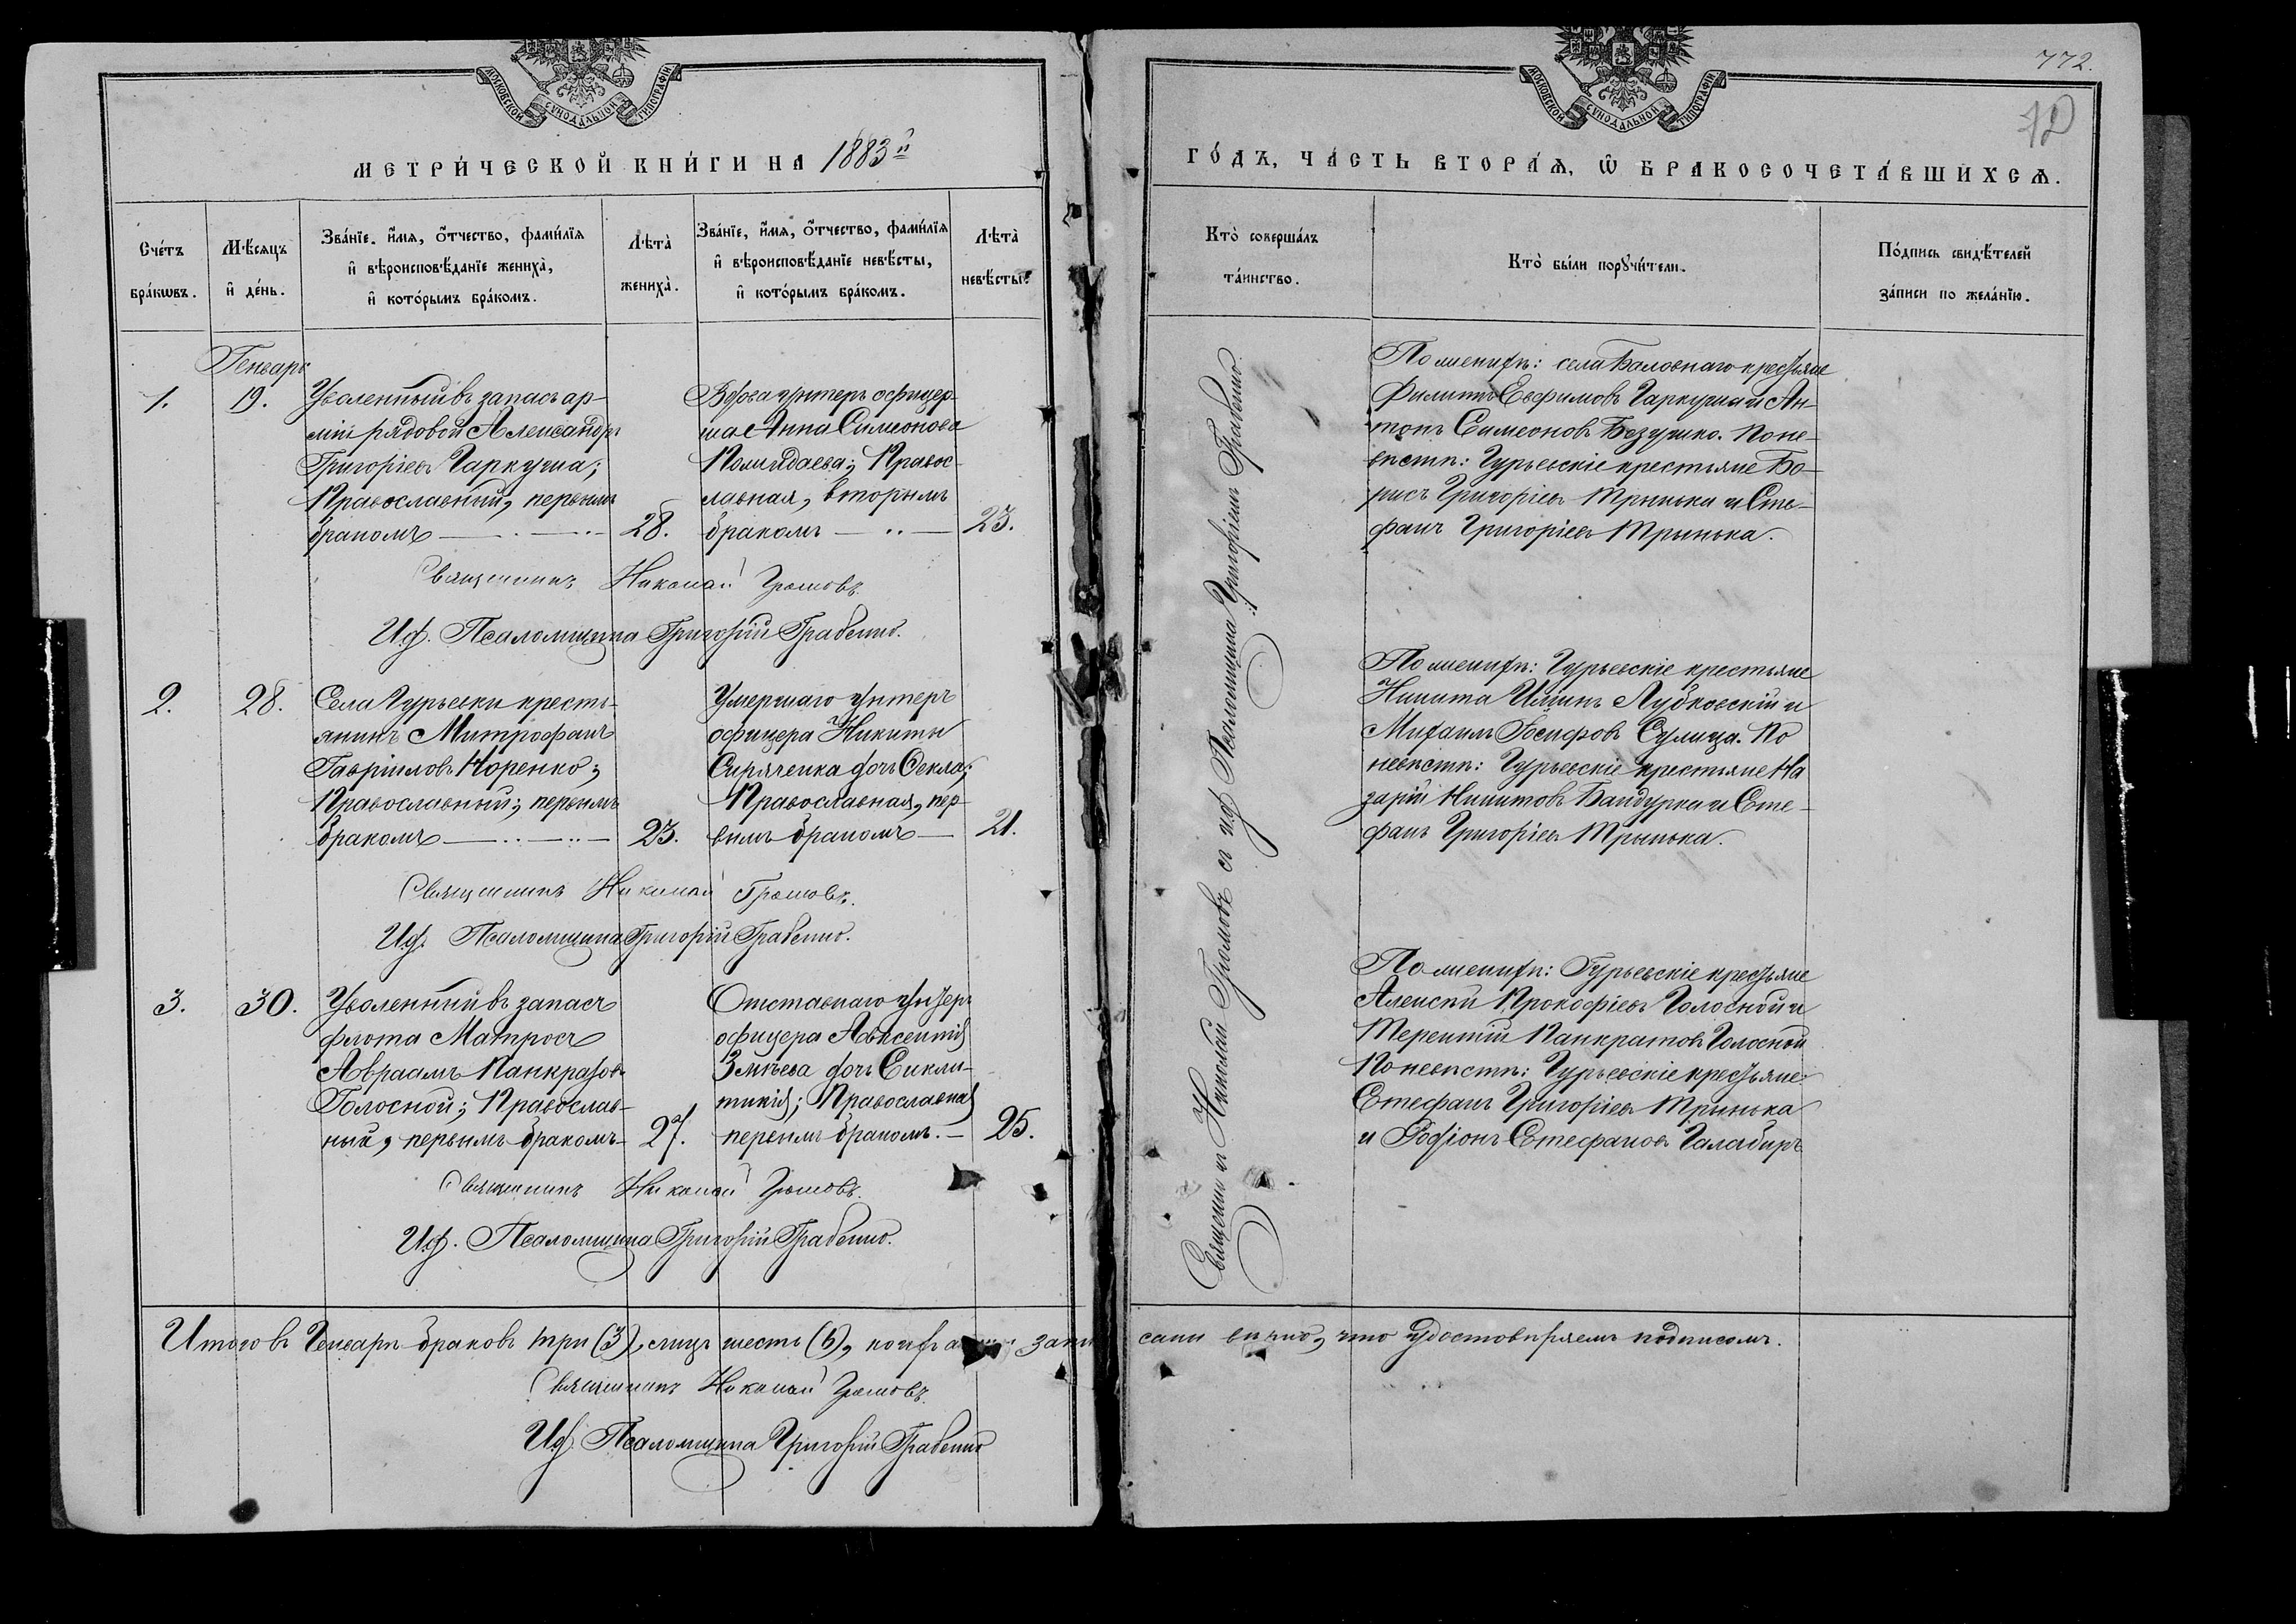 МОСКОВСКОЙ СѴНОДАЛЬНОЙ ТИПОГРАФІИ
МЕТРИ́ЧЕСКОЙ КНИ́ГИ НА 1883й
Сче́тъ бра́кωвъ.
Мѣ́сяцъ и҆ де́нь.
Зва́нїе, и҆́мя, ѻ҆́тчество, фами́лїя
и҆ вѣроисповѣ́данїе жениха̀,
и҆ кото́рымъ бра́комъ.
Лѣта̀ жениха̀.
Зва́нїе, и҆́мя, ѻ҆́тчество, фами́лїя
и҆ вѣроисповѣ́данїе невѣ́сты,
и҆ кото́рымъ бра́комъ.
Лѣта̀ невѣ́сты.
Генварь
1.
19.
Уволенный въ запасъ ар-
міи рядовой Александръ
Григоріевъ Гаркуша;
Православный, первымъ
бракомъ
28.
Вдова унтеръ офицер-
ша Анна Симеонова
Правос-
лавная, вторымъ
бракомъ
23.
Священникъ Николай Громовъ.
И.д. Псаломщика Григорій Грабенко.
2.
28.
Села Гурьевки кресть-
янинъ Митрофанъ
Гавріиловъ Норенко;
Православный; первымъ
бракомъ
23.
Умершаго унтеръ
офицера Никиты
Сиряченка дочь Ѳекла;
Православная, пер-
вымъ бракомъ
21.
Священникъ Николай Громовъ.
И.д. Псаломщика Григорій Грабенко.
3.
30.
Уволенный въ запасъ
флота Матросъ
Авраамъ Панкратов
Голосной; Православ-
ный, первымъ бракомъ
27.
Отставнаго унтеръ
офицера Авксентія
Змѣева дочь Сикли-
тикія; Православная
первымъ бракомъ.
25.
Священникъ Николай Громовъ.
И.д. Псаломщика Григорій Грабенко.
Итого въ Генварѣ браковъ три (3), лицъ шесть (6), запи
Священникъ Николай Громовъ.
И.д. Псаломщика Григорій Грабенко
772.
МОСКОВСКОЙ СѴНОДАЛЬНОЙ ТИПОГРАФІИ
ГО́ДЪ, ЧА́СТЬ ВТОРА́Ѧ, Ѽ БРАКОСОЧЕТА́ВШИХСѦ.
Кто̀ соверша́лъ
та́инство.
Кто̀ бы́ли порꙋчи́тели.
По́дпись свидѣ́телей
за́писи по жела́нїю.
Священникъ Николай Громовъ съ и.д. Псаломщика Григоріемъ Грабенко.
По женихѣ: села Баловнаго крестьяне
Филиппъ Евфимовъ Гаркуша и Ан-
тонъ Симеоновъ Безушко. По не-
вѣстѣ: Гурьевскіе крестьяне Бо-
рисъ Григоріевъ Трынька и Сте-
фанъ Григоріевъ Трынька.
По женихѣ: Гурьевскіе крестьяне
Никита Ильинъ Лубковскій и
Михаилъ Іосифовъ Сулица. По
невѣстѣ: Гурьевскіе крестьяне На
зарій Никитовъ Бандурка и Сте-
фанъ Григоріевъ Трынька.
По женихѣ: Гурьевскіе крестьяне
Алексѣй Прокофіевъ Голосной и
Терентій Панкратовъ Голосной
По невѣстѣ: Гурьевскіе крестьяне
Стефанъ Григоріевъ Трынька
и Родіонъ Стефановъ Галабиръ
саны вѣрно, что удостовѣряемъ подписомъ.